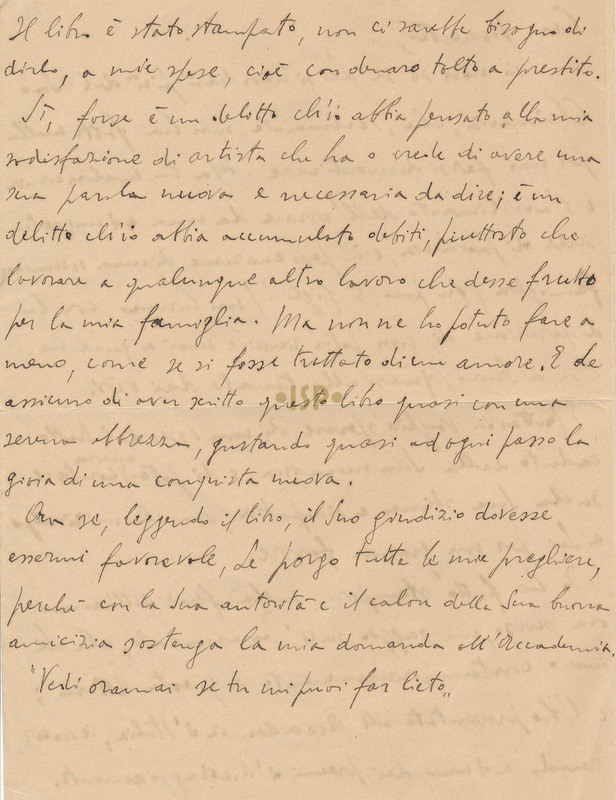 Il libro è stato stampato, non ci sarebbe bisogno di
dirlo, a mie spese, cioè con denaro tolto a prestito.
Sì, forse è un delitto ch'io abbia pensato alla mia
sodisfazione di artista che ha o crede di avere una
sua parola nuova e necessaria da dire; è un
delitto ch'io abbia accumulato debiti, piuttosto che
lavorare a qualunque altro lavoro che desse frutto
per la mia famiglia. Ma non ne ho potuto fare a
meno, come se si fosse trattato di un amore. E Le
assicuro di aver scritto questo libro quasi con una
•ISP•
serena ebbrezza, gustando quasi ad ogni passo la
gioia di una conquista nuova.
Ora se, leggendo il libro, il Suo giudizio dovesse
essermi favorevole, Le porgo tutte le mie preghiere,
perché con la Sua autorità e il calore della Sua buona
amicizia sostenga la mia domanda all'Accademia.
"Vedi oramai se tu mi puoi far lieto„